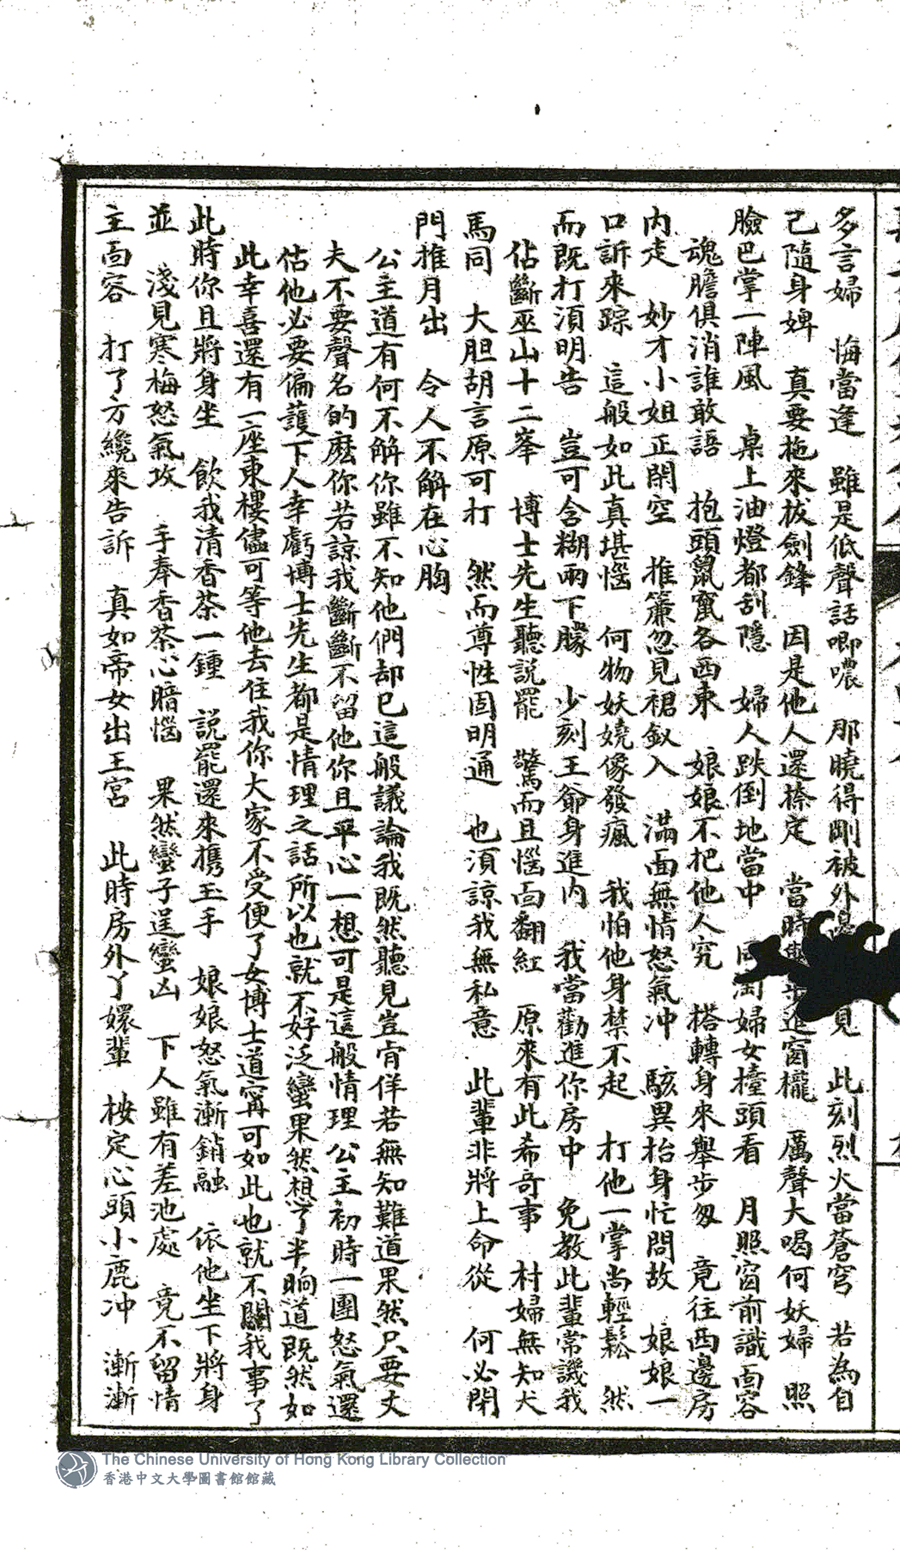 多言婦　悔當逢　雖是低聲話唧噥　那曉得剛被外邊　見　此刻烈火當蒼穹　若為自
己隨身婢　真要拖來拔劍鋒　因是他人還捺定　當時　步進窗櫳　厲聲大喝何妖婦　照
臉巴掌一陣風　桌上油燈都刮隱　婦人跌倒地當中　同　婦女擡頭看　月照窗前識面容
魂膽俱消誰敢語　抱頭鼠竄各西東　娘娘不把他人究　搭轉身來舉步匆　竟往西邊房
內走　妙才小姐正閑空　推簾忽見裙釵入　滿面無情怒氣冲　駭異抬身忙問故　娘娘一
口訴來踪　這般如此真堪惱　何物妖嬈像發瘋　我怕他身禁不起　打他一掌尚輕鬆　然
而既打湏明告　豈可含糊兩下朦　少刻王爺身進內　我當勸進你房中　免教此輩常譏我
佔斷巫山十二峯　博士先生聽説罷　驚而且惱面翻紅　原來有此希奇事　村婦無知犬
馬同　大胆胡言原可打　然而尊性固明通　也湏諒我無私意　此輩非將上命從　何必閉
門推月出　令人不解在心胸
公主道有何不解你雖不知他們却已這般議論我既然聽見豈肯佯若無知難道果然只要丈
夫不要聲名的麽你若諒我斷斷不留他你且平心一想可是這般情理公主初時一團怒氣還
估他必要偏護下人幸虧博士先生都是情理之話所以也就不好泛蠻果然想了半晌道既然如
此幸喜還有一座東樓儘可等他去住我你大家不受便了女博士道寗可如此也就不關我事了
此時你且將身坐　飲我清香茶一鍾　説罷還來攜玉手　娘娘怒氣漸銷融　依他坐下將身
並　淺見寒梅怒氣攻　手奉香茶心暗惱　果然蠻子逞蠻凶　下人雖有差池處　竟不留情
主面容　打了方纔來告訴　真如帝女出王宮　此時房外丫嬛輩　桉定心頭小鹿冲　漸漸
The Chinese University of Hong Kong Library Collection
香港中文大學圖書館館藏